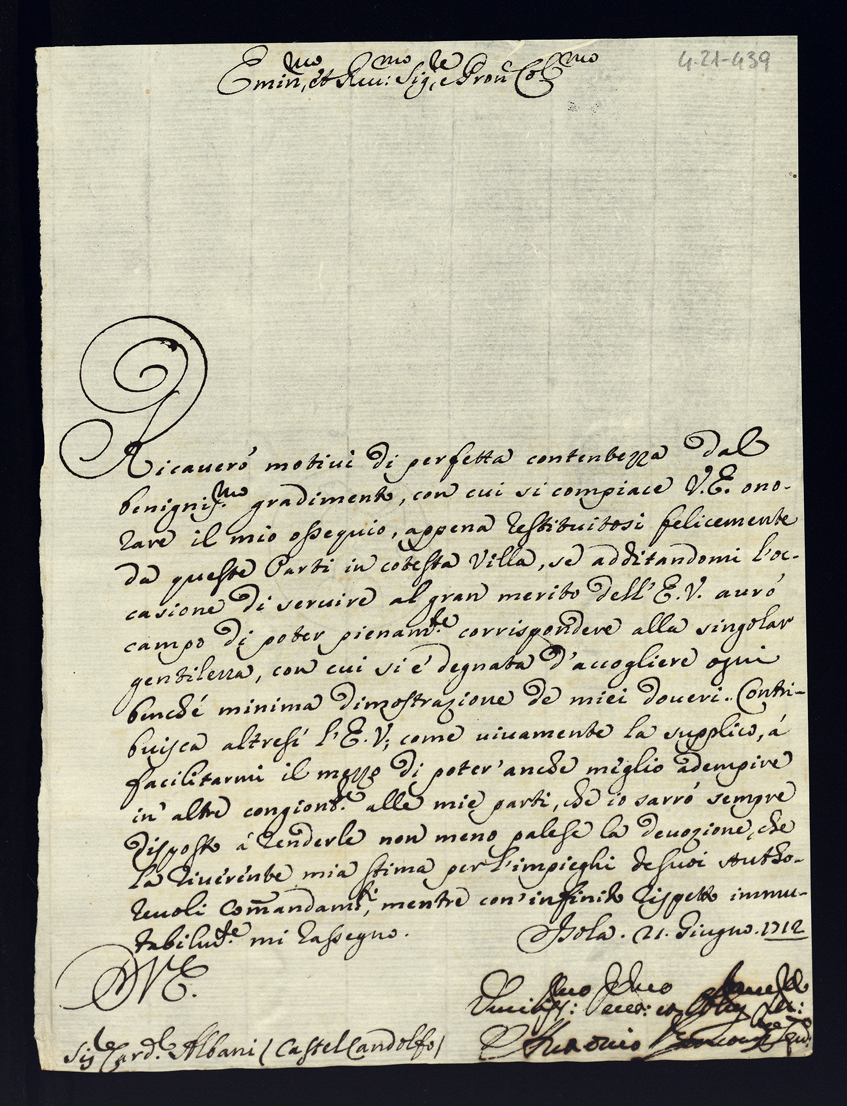 4-21-439
Emin.mo, et Reu:mo Sig.re, e Pron Col.mo
Ricauerò motiui di perfetta contentezza dal
benigniss.mo gradimento, con cui si compiace V.E. ono-
rare il mio ossequio, appena restituitosi felicemente
da queste Parti in cotesta Villa, se additandomi l'oc-
casione di seruire al gran merito dell'E.V. aurò
campo di poter pienam.te corrispondere alla singolar
gentilezza, con cui si è degnata d'accogliere ogni
benché minima dimostrazione de miei doueri. Contri-
buisca altresì l'E.V., come uiuamente la supplico, á
facilitarmi il mezzo di poter'anche meglio adempire
in'altre congiont.re alle mie parti, che io sarrò sempre
disposto á renderle non meno palese la deuozione, che
la riuerente mia stima per l'impieghi de suoi autho-
reuoli Com̄andam.ti, mentre con'infinito rispetto immu-
tabilm.te mi rassegno. Isola. 21. Giugno. 1712
D V.E.
Sig.r Card.l Albani (Castel Candolfo)
Antonio